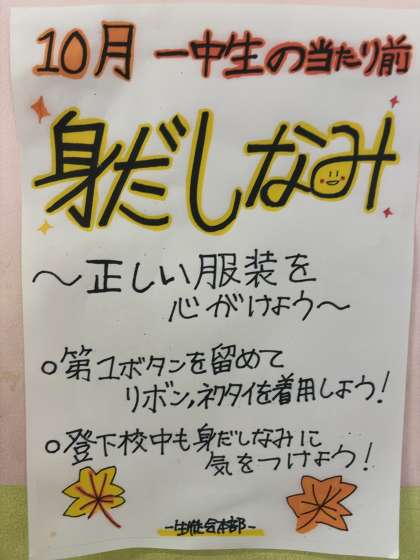 10月 一中生の当たり前
身だしなみ
～正しい服装を
心がけよう～
○第1ボタンを留めて
リボン,ネクタイを着用しよう！
○登下校中も身だしなみに
気をつけよう！
-生徒会本部-